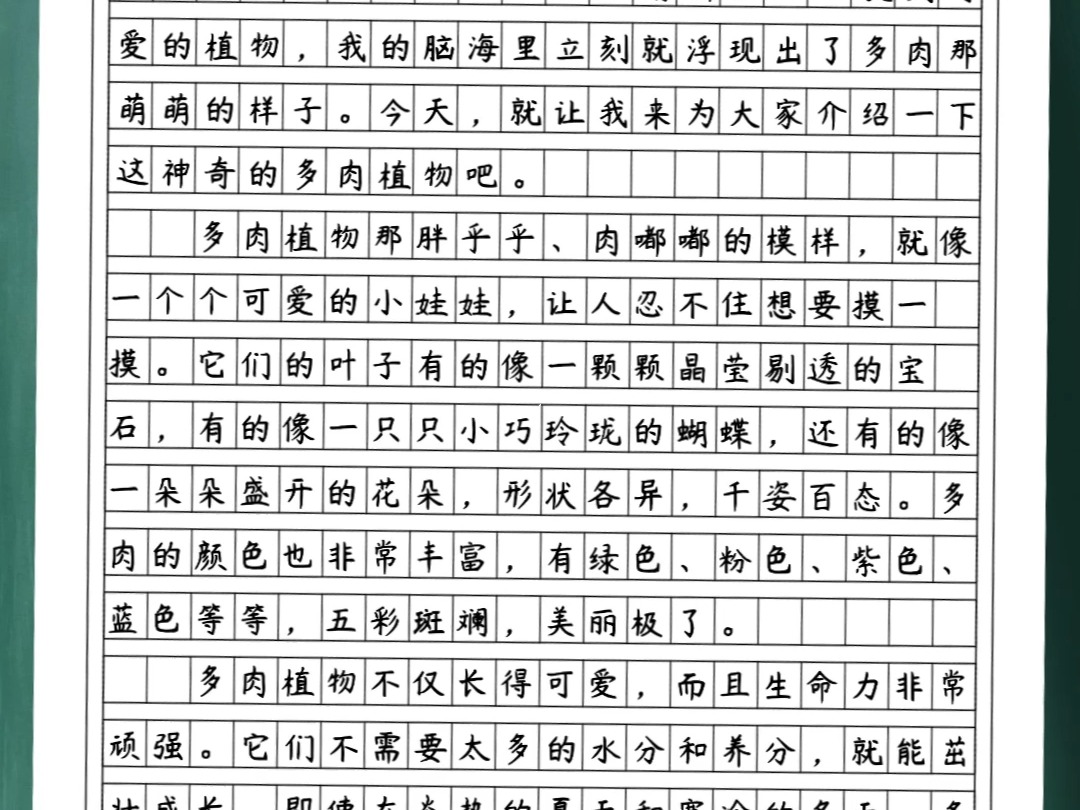 爱的植物，我的脑海里立刻就浮现出了多肉那
萌萌的样子。今天，就让我来为大家介绍一下
这神奇的多肉植物吧。
多肉植物那胖乎乎、肉嘟嘟的模样，就像
一个个可爱的小娃娃，让人忍不住想要摸一
摸。它们的叶子有的像一颗颗晶莹剔透的宝
石，有的像一只只小巧玲珑的蝴蝶，还有的像
一朵朵盛开的花朵，形状各异，千姿百态。多
肉的颜色也非常丰富，有绿色、粉色、紫色、
蓝色等等，五彩斑斓，美丽极了。
多肉植物不仅长得可爱，而且生命力非常
顽强。它们不需要太多的水分和养分，就能茁
壮成长。即使在炎热的夏天和寒冷的冬天，多